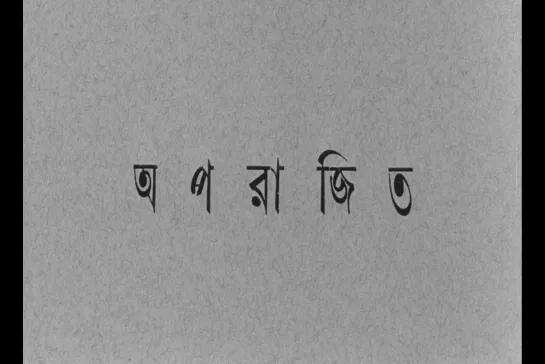 অপরাজিত